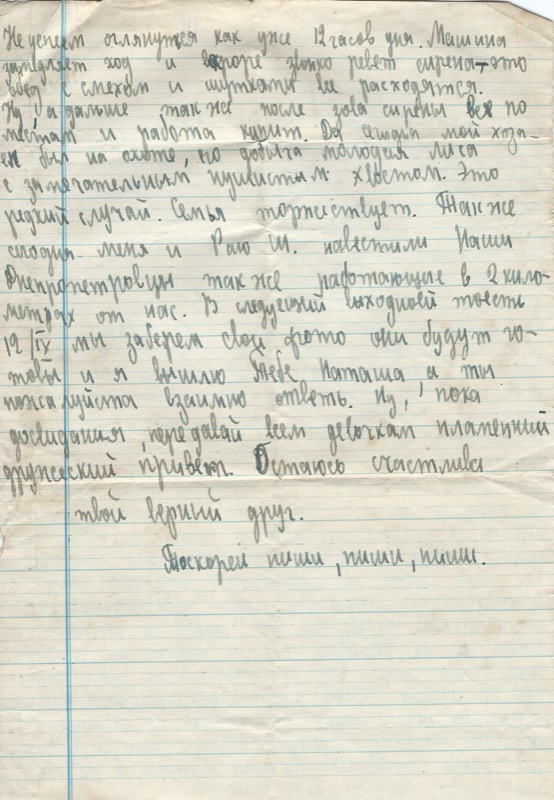 Не успеем оглянутся как уже 12 часов дня. Машина
замедляет ход и вскоре звонко ревет сирена – это
обед с смехом и шутками все расходятся.
Ну, а дальше так же после зова сирены все по
местам и работа кипит. Да сегодня мой хозя-
ен был на охоте, его добыча молодая лиса
с замечательным пушистым хвостом. Это
редкий случай. Семья торжествует. Так же
сегодня меня и Раю Ш. навестили Наши
Днепропетровцы так же работающие в 2 кило-
метрах от нас. В следующий выходной тоесть
12/IX мы заберем свои фото они будут го-
товы и я вышлю Тебе Наташа а ты
пожалуйста взаимно ответь. Ну, пока
досвидания, передавай всем девочкам пламенный
дружеский привет. Остаюсь счастлива
твой верный друг.
Поскорей пиши, пиши, пиши.